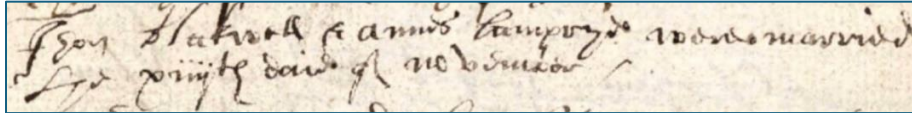 Jhon Blakwell & annis lamprye weare married
the xiiijth daie of november